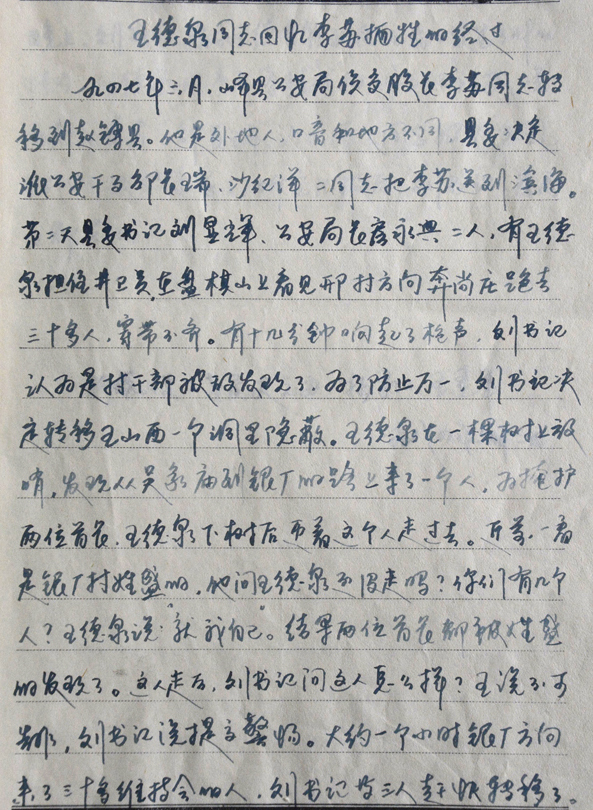 王德泉同志回忆李苏牺牲的经过
一九四七年三月，峄县公安局侦交股长李苏同志转
移到赵镈县。他是外地人，口音和地方不同，县委决定
派公安干部邵长瑞、沙纪洋二同志把李苏送到滨海。
第二天县委书记刘显辉、公安局长唐永兴二人，有王德
泉担任井卫员，在盘棋山上看见邢村方向奔尚庄跑去
三十多人，穿带不齐。有十几分钟响起了枪声，刘书记
认为是村干部被敌发现了，为了防止万一，刘书记决
定转移王山西一个洞里隐蔽。王德泉在一棵树上放
哨，发现从吴家庙到银厂的路上来了一个人，为掩护
两位首长，王德泉下树后币着这个人走过去。近前一看
是银厂村姓盛的，他问王德泉还没走吗？你们有几个
人？王德泉说"就我自己"。结果两位首长都被姓盛
的发现了。这人走后，刘书记问这人怎么样？王说不可
靠，刘书记说提高警惕。大约一个小时银厂方向
来了三十多维持会的人，刘书记等三人赶快转移了。